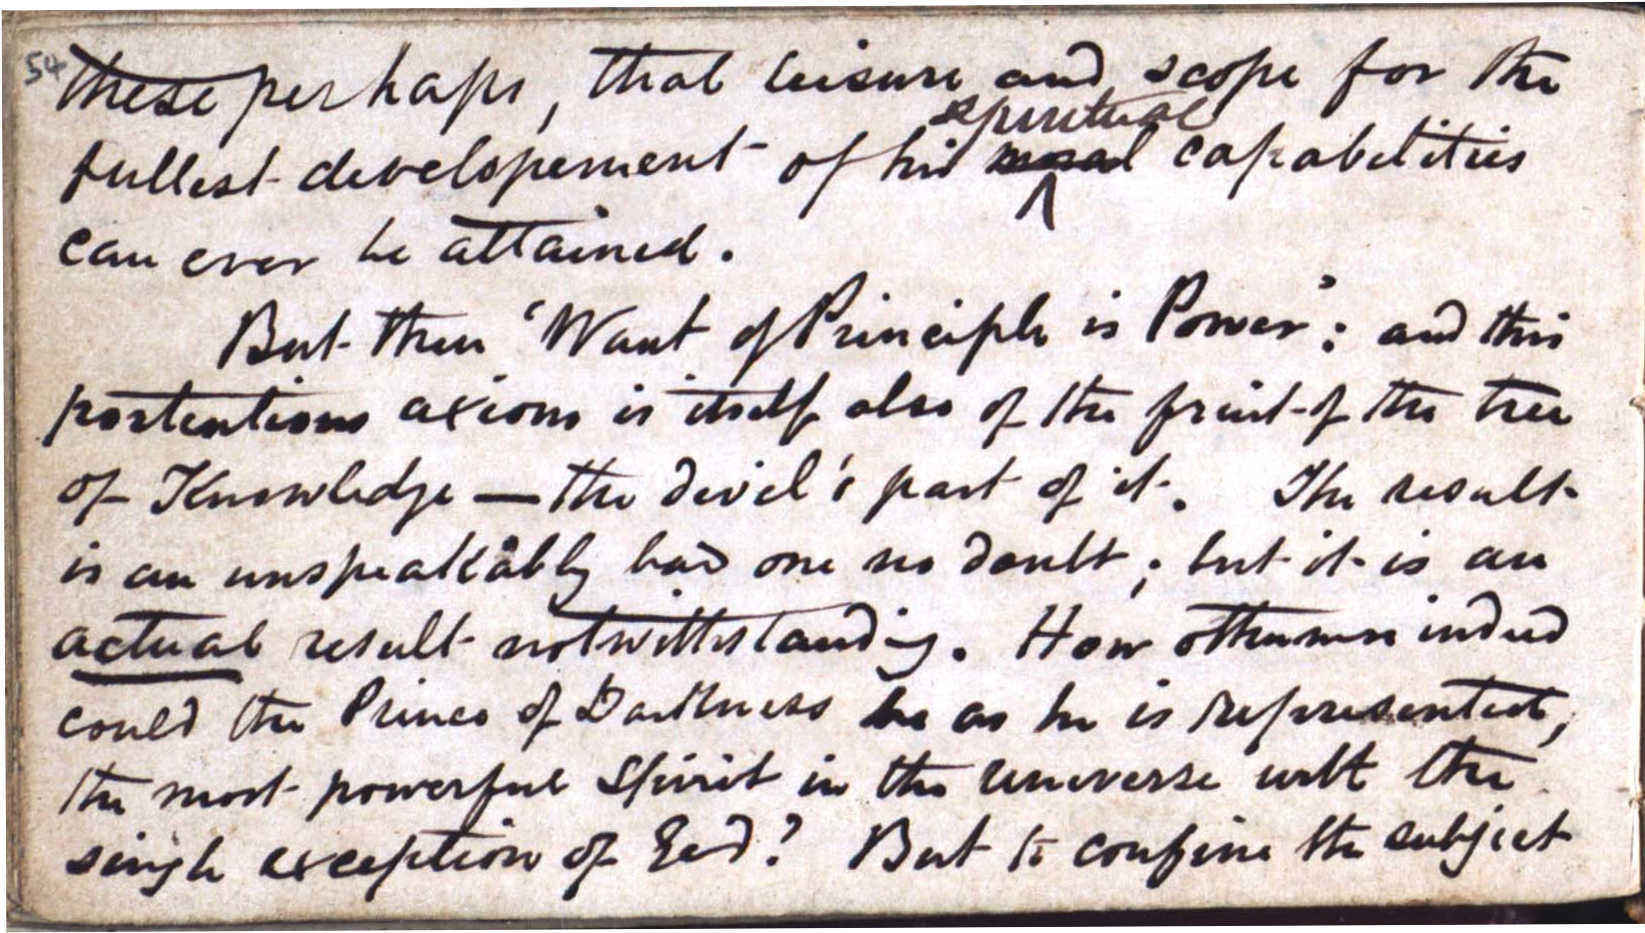 54
these perhaps, that leisure and scope for the
spiritual
fullest developement of his moral capabilities
can ever be attained.
But then 'Want of Principle is Power': and this
portentious axiom is itself also of the fruit of the tree
of Knowledge — the devil's part of it. The result
is an unspeakably bad one no doubt; but it is an
actual result notwithstanding. How otherwise indeed
could the Prince of Darkness be as he is represented,
the most powerful Spirit in the universe with the
single exception of God? But to confine the subject